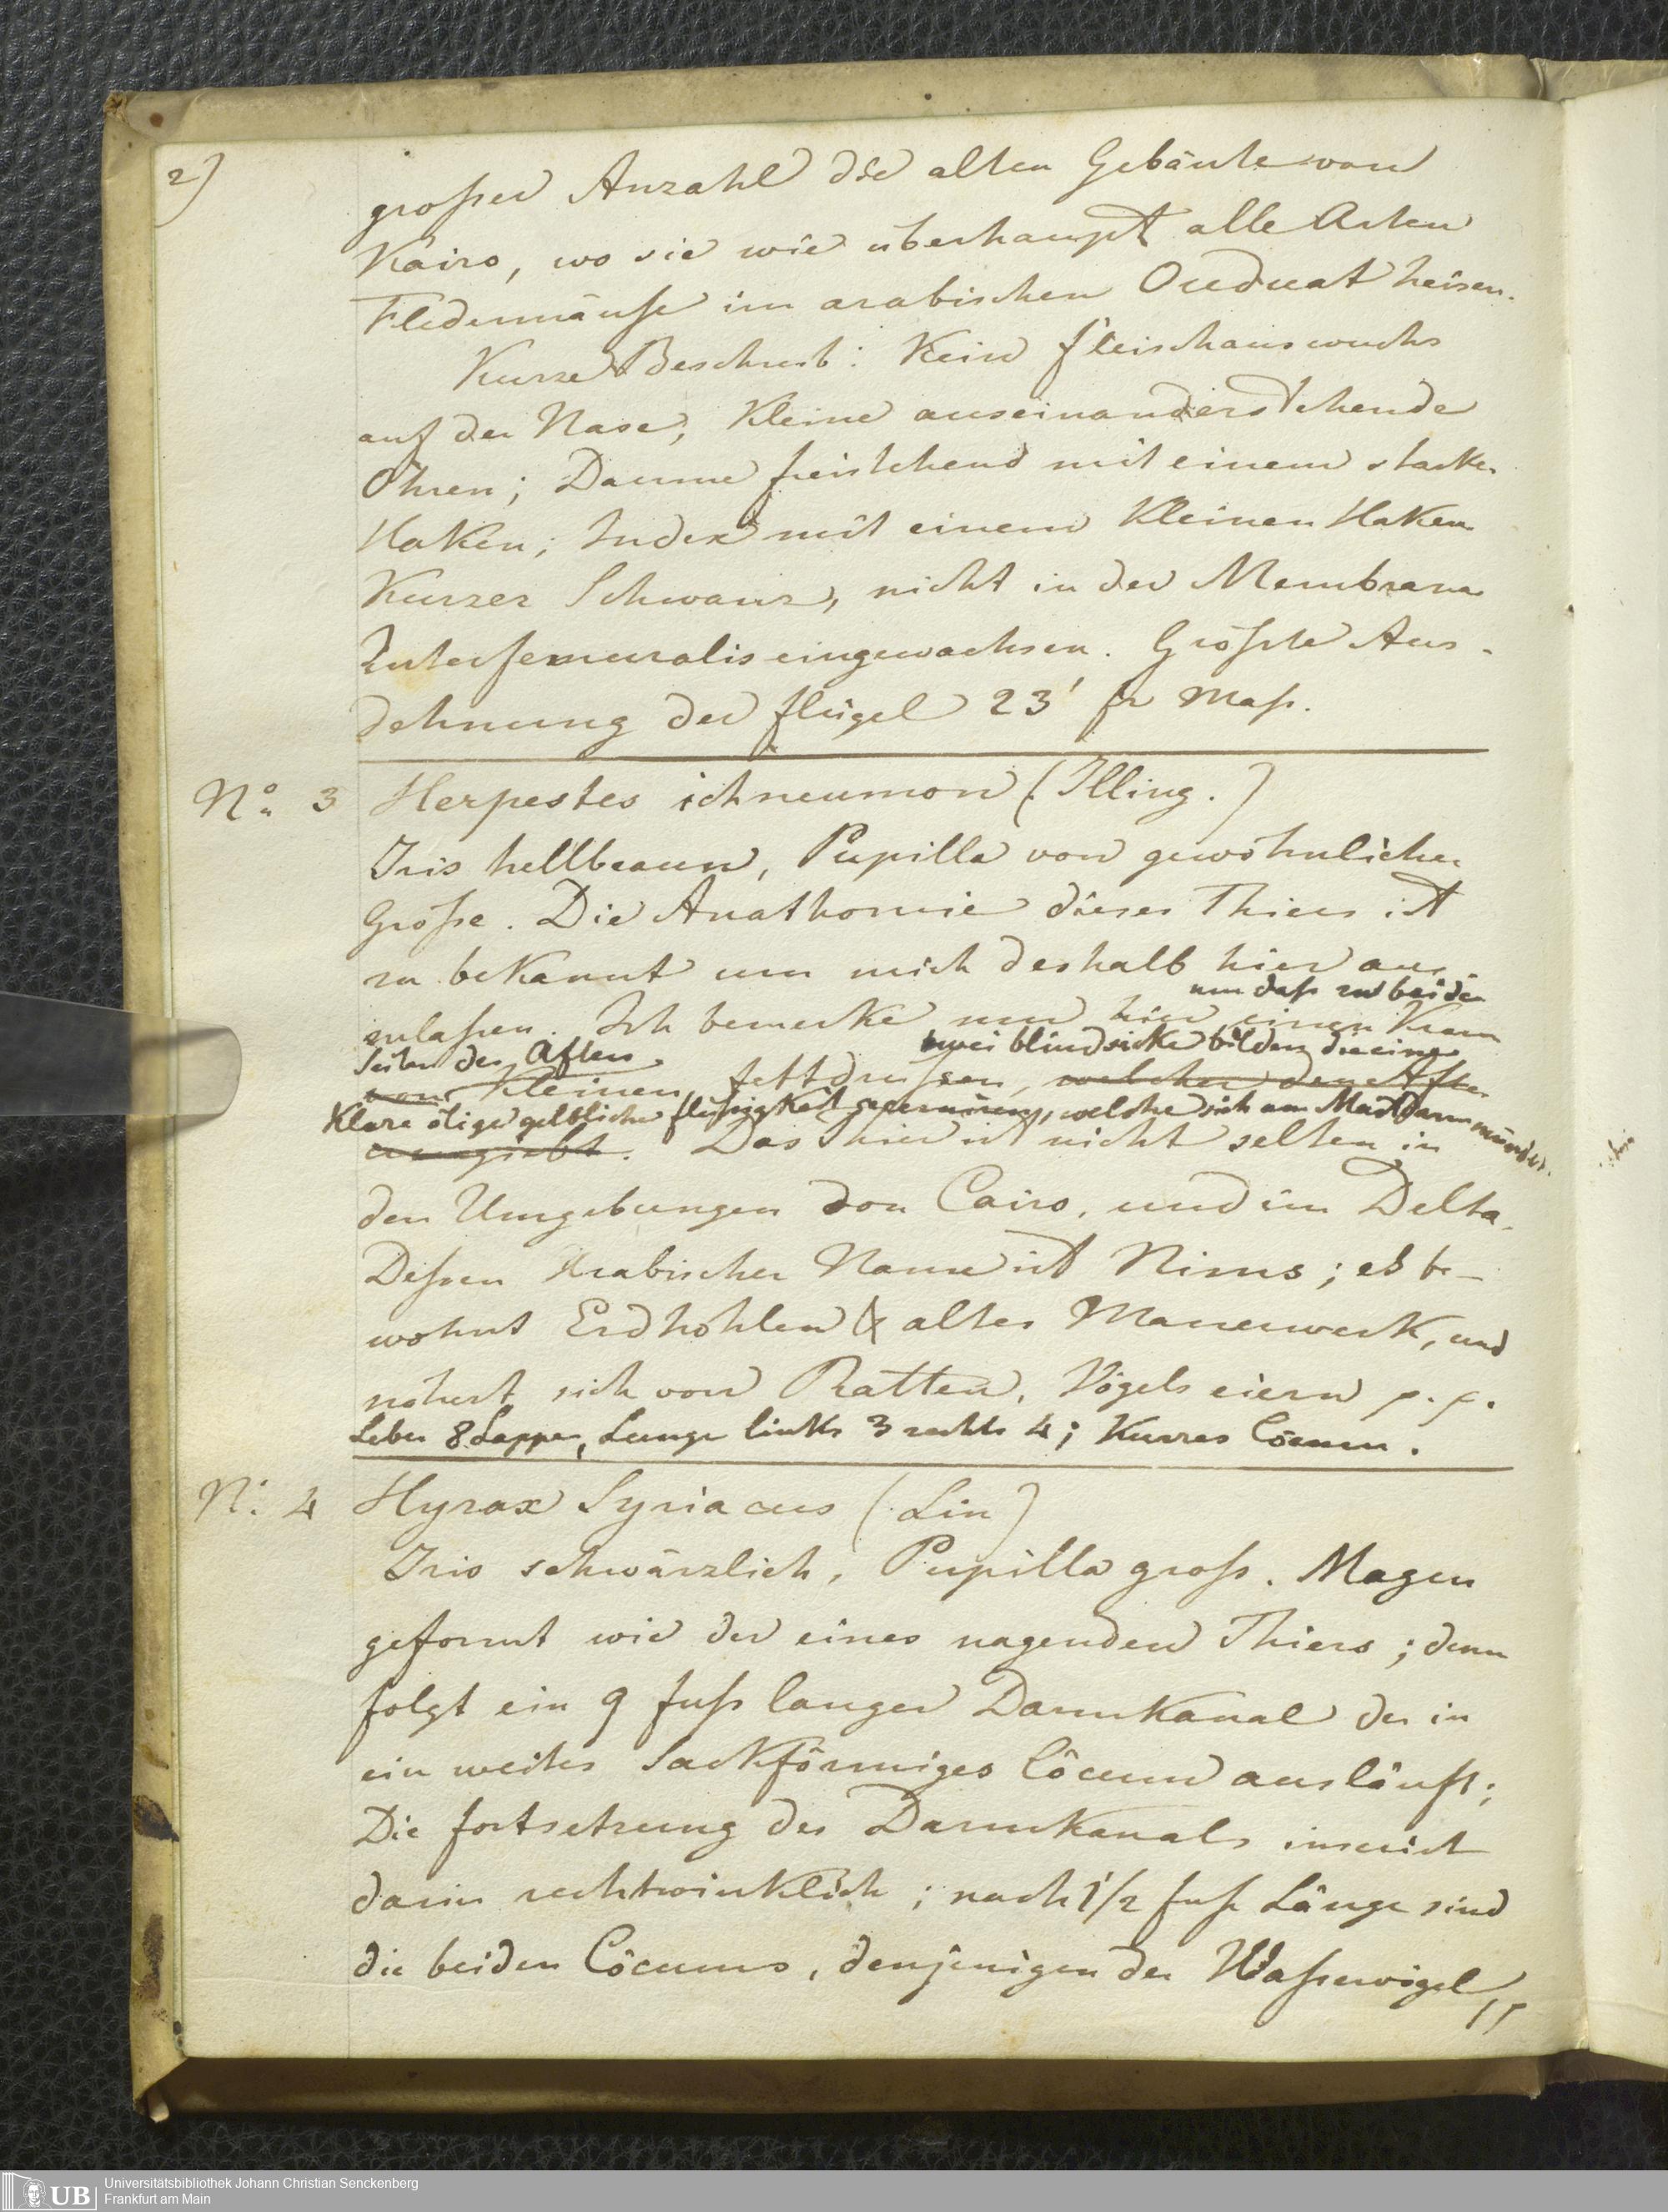 2)
großer Anzahl die alten Gebäute von
Kairo, wo sie wie überhaupt alle Arten
Fledermäuse im arabischen Ouduat heisen.
Kurze Beschreib: Kein fleischauswuchs
auf der Nase, Kleine auseinanderstehende
Ohren; Daume freistehend mit einem starken
Haken; Index mit einem Kleinen Haken
Kurzer Schwanz, nicht in der Membrana
Interfemuralis eingewachsen. Größte Aus-
dehnung der flügel 23' fr Maß.
No. 3 Herpestes ichneumon (Illing.)
Iris hellbraun, Pupilla von gewöhnlicher
Größe. Die Anathomie dieses Thiers ist
zu bekannt um mich deshalb hier aus
nur daß zu beiden
zulaßen. Ich bemerke nur hier einen Kranz
Seiten des Afters zwei blindsäcke bilden die eine
von Kleinen fettdrüsen, welcher den After
Klare ölige gelbliche flüßigkeit welche sich am Mastdarm münden.
umgiebt. Das Thier ist nicht selten in
den Umgebungen von Cairo, und im Delta.
Deßen Arabischer Name ist Nims; es be-
wohnt Erdhöhlen & altes Mauerwerk, und
nährt sich von Ratten, Vögels eiern p. p.
Leber 8 Lappen, Lunge links 3 rechts 4; Kurzes Cöcum.
N: 4 Hyrax Syriacus (Lin)
Iris schwärzlich, Pupilla groß. Magen
geformt wie der eines nagenden Thiers; dann
folgt ein 9 fuß langer Darmkanal der in
ein weites Sackförmiges Cöcum ausläuft;
Die fortsetzung des Darmkanals inserirt
darin rechtwinklich; nach 1 1/2 fuß Länge sind
die beiden Cöcums, denjenigen der Waßervögel
UB Universitätsbibliothek Johann Christian Senckenberg
Frankfurt am Main